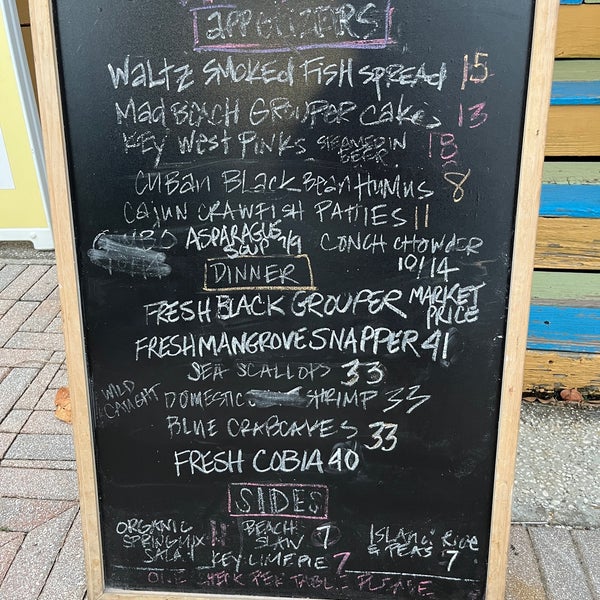 APPETIZERS
WALTZ SMOKED FISH SPREAD 15
MAD BEACH GROUPER CAKES 13
KEY WEST PINKS STEAMED IN BEER 18
CUBAN BLACK BEAN HUMUS 8
CAJUN CRAWFISH PATTIES 11
ASPARAGUS SOUP 7/9 CONCH CHOWDER 10/14
DINNER
FRESH BLACK GROUPER MARKET PRICE
FRESH MANGROVE SNAPPER 41
SEA SCALLOPS 33
WILD CAUGHT DOMESTIC SHRIMP 33
BLUE CRABCAKES 33
FRESH COBIA 40
SIDES
ORGANIC SPRING MIX SALAD 11 BEACH SLAW 7 ISLAND RICE & PEAS 7
KEY LIME PIE 7
ONE CHECK PER TABLE PLEASE